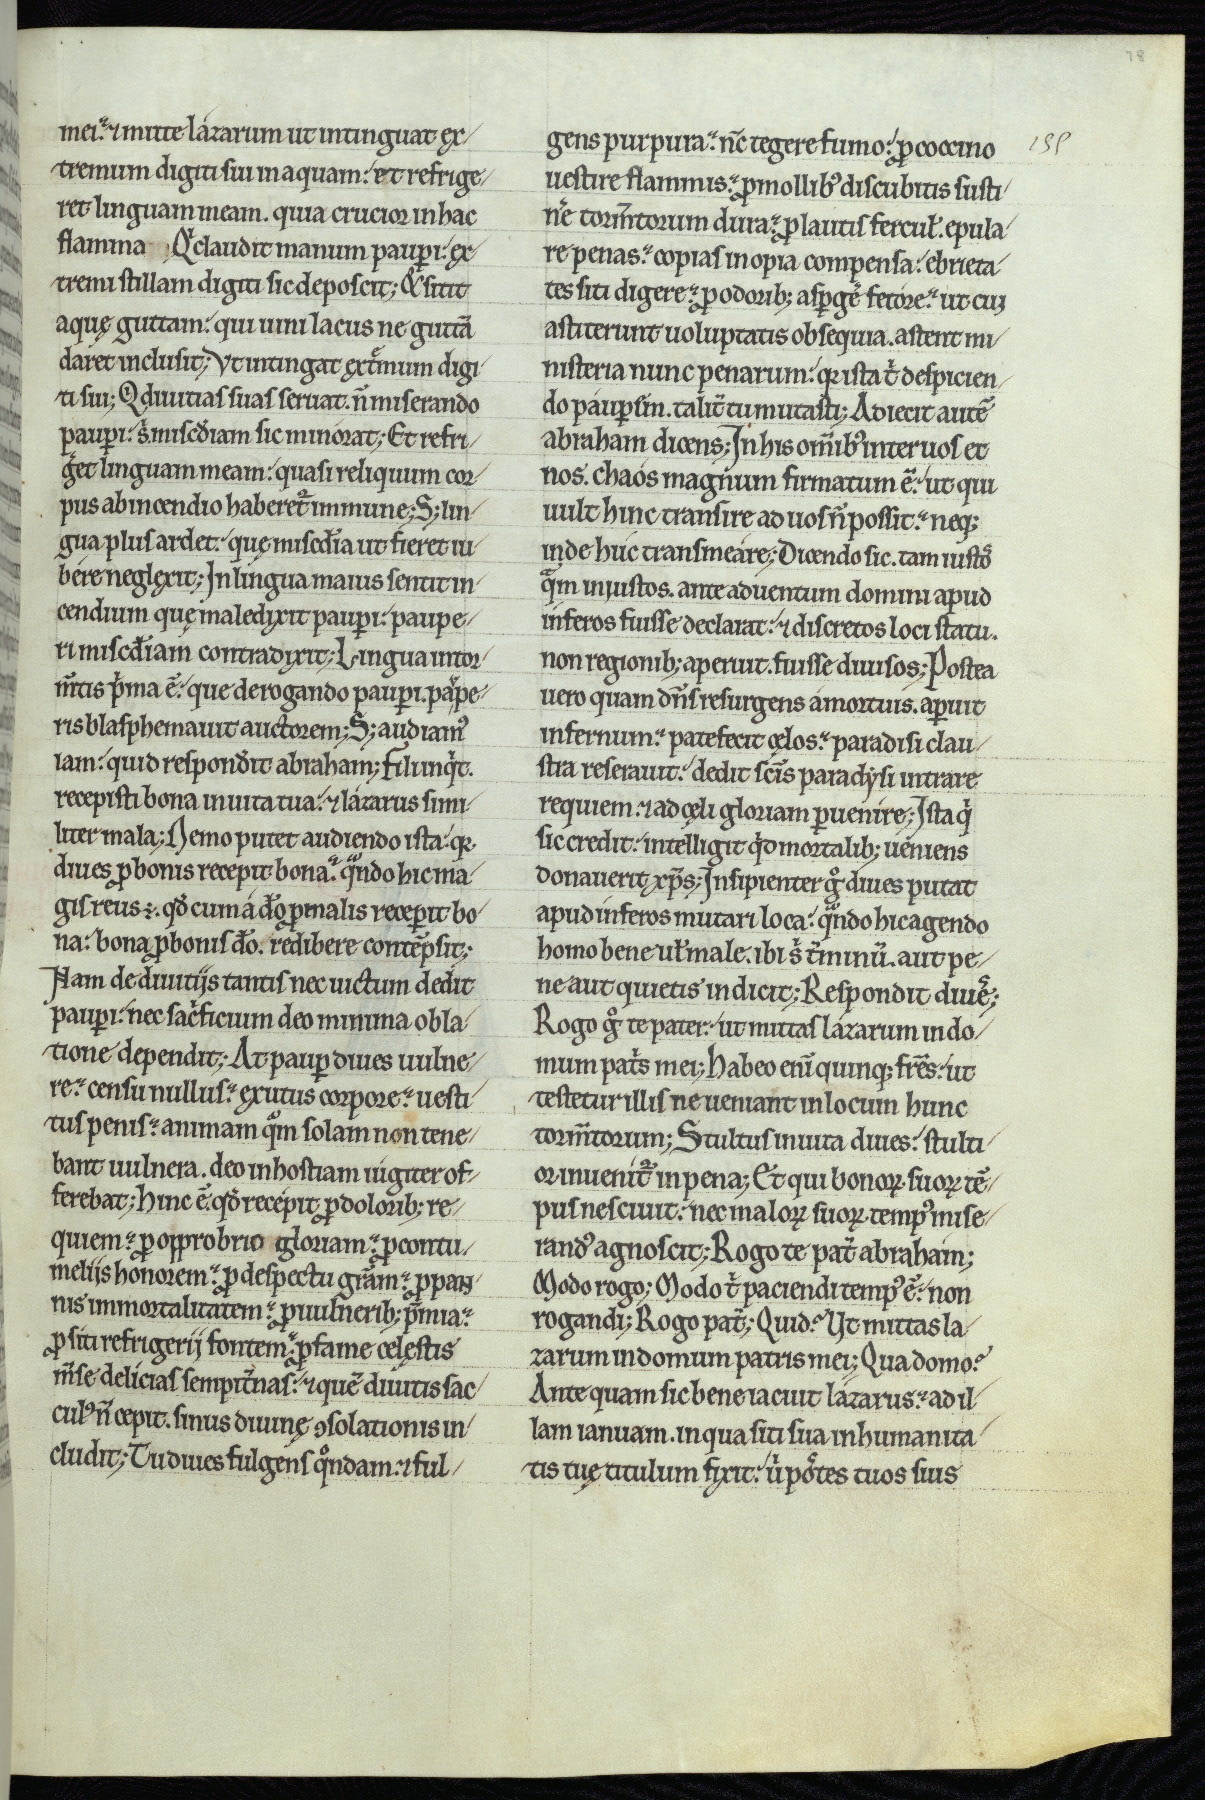 mei. ⁊ mitte lazarum ut intinguat ex/
tremum digiti sui in aquam. et refrige/
ret linguam meam. quia crucior in hac
flamma Qͥ claudit manum pauꝑi. ex/
tremi stillam digiti sic deposcit; Qͥ sitit
aquę guttam. qui uini lacus ne guttā
daret inclusit; Vt intingat extͤmum digi/
ti sui; Q diuitias suas seruat. n̄ miserando
pauꝑi. s; misc̄diam sic minorat; Et refri/
g̃et linguam meam. quasi reliquum cor/
pus ab incendio haberet᷑ immune; S; lin/
gua plus ardet. quę misc̄dia ut fieret iu/
bere neglexit; In lingua maius sentit in/
cendium quę maledixit pauꝑi. paupe/
ri misc̄diam contradixit; Lingua in tor/
m̄tis pͥma ē. que derogando pauꝑi. pauꝑe/
ris blasphemauit auctorem; S; audiamꝰ
iam. quid respondit abraham; Fili inqͥt.
recepisti bona in uita tua. ⁊ lazarus simi/
liter mala; Nemo putet audiendo ista. qꝛ
diues ꝓ bonis recepit bona. qͣndo hic ma/
gis reus ÷. qđ cum a dō ꝓ malis receꝑit bo/
na. bona ꝓ bonis dō. redibere contēpsit;
Nam de diuitijs tantis nec uictum dedit
pauꝑi. nec sacͥficium deo minima obla/
tione dependit; At pauꝑ diues uulne/
re. censu nullus. exutus corpore. uesti/
tus penis. animam qͦm solam non tene/
bant uulnera. deo in hostiam iugiter of/
ferebat; Hinc ē. qđ recepit ꝓ dolorib; re/
quiem. ꝓ opprobrio gloriam. ꝓ contu/
melijs honorem. ꝓ despectu gr̄am. ꝓ pan/
nis immortalitatem. ꝓ uulnerib; p̄mia.
ꝓ siti refrigerij fontem. ꝓ fame celestis
m̄se delicias sempit̄nas. ⁊ quē diuitis sac/
culꝰ n̄ cepit. sinus diuinę ꝯsolationis in/
cludit; Tu diues fulgens qͦndam. ⁊ ful/
gens purpura. nc̄ tegere fumo. ꝓ coccino
uestire flammis. ꝓ mollibꝰ discubitis susti/
nē torm̄torum dura. ꝓ lautis fercuł. epula/
re penas. copias inopia compensa. ebrieta/
tes siti digere. ꝓ odorib; asꝑgē fetore. ut cui
astiterunt uoluptatis obsequia. astent mi/
nisteria nunc penarum. qꝛ ista t̄ despicien/
do pauꝑem. talit̄ tu mutasti; Adiecit autē
abraham dicens; In his om̄ibꝰ inter uos et
nos. chaos magnum firmatum ē. ut qui
uult hinc transire ad uos n̄ possit. neq;
inde huc transmeare; Dicendo sic. tam iustos
qͣm injustos. ante aduentum domini apud
inferos fuisse declarat. ⁊ discretos loci statu.
non regionib; aperuit. fuisse diuisos; Postea
uero quam dn̄s resurgens a mortuis. aꝑuit
infernum. patefecit cęlos. paradisi clau/
stra reserauit. dedit sc̄is paradysi intrare
requiem. ⁊ ad cęli gloriam ꝑuenire; Ista qͥ
sic credit. intelligit qͥd mortalib; ueniens
donauerit xp̄s; Insipienter gͦ diues putat
apud inferos mutari loca. qͣndo hic agendo
homo bene uł male. ibi s; t̄minū. aut pe/
ne aut quietis indicit; Respondit diuē;
Rogo gͦ te pater. ut mittas lazarum in do/
mum pat̄s mei; Habeo enī quinq; fr̄es. ut
testetur illis ne ueniant in locum hunc
torm̄torum; Stultus in uita diues. stulti/
or inuenit᷑ in pena; Et qui bonoꝝ suoꝝ tē/
pus nesciuit. nec maloꝝ suoꝝ tempꝰ mise/
randꝰ agnoscit; Rogo te pat̄ abraham;
Modo rogo; Modo t̄ paciendi tempꝰ ē. non
rogandi; Rogo pat̄; Quid? Vt mittas la/
zarum in domum patris mei; Qua domo?
Ante quam sic bene iacuit lazarus. ad il/
lam ianuam. in qua siti sua inhumanita/
tis tuę titulum fixit. uͥ potes tuos suis
199
78